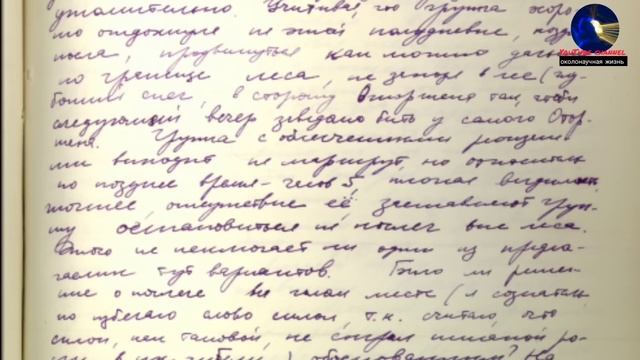 утомительно. Учитывая, что группа хоро-
шо отдохнула на этой полудневке,
после, продвинуться как можно дальше
по границе леса, не заходя в нее (глу-
бокий снег), в сторону Отортена так, чтобы
следующий вечер заведомо быть у самого Отор-
тена. Группа с облегченными рюкзака-
ми выходит на маршрут, но
по позднее время - часов 5, плохая видимость
точнее, отсутствие её, заставляют груп-
пу остановиться на ночлег вне леса.
Этого не исключает ни один из предла-
гаемых тут вариантов. Было ли реше-
ние о ночлеге на голом месте (я сознатель-
но избегаю слово склон, т.к. считаю, что
склон, как таковой, не сыграл никакой ро-
ли в их гибели) обоснованным? На
YouTube Channel
околонаучная жизнь